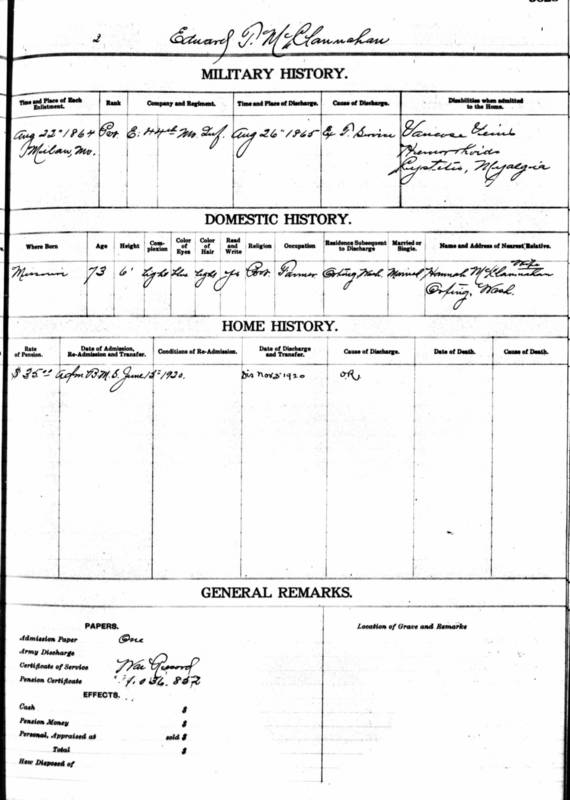 2 Edward T. McClannahan
MILITARY HISTORY.
Time and Place of Each Enlistment. Rank Company and Regiment. Time and Place of Discharge. Cause of Discharge. Disabilities when admitted to the Home.
Aug 22" 1864 Pvt E. 44th Mo. Inf. Aug 26" 1865 Ex T. Service Varicose Veins
Milan, Mo. Hemorrhoids
Cystitis, Myalgia
DOMESTIC HISTORY.
Where Born Age Height Complexion Color of Eyes Color of Hair Read and Write Religion Occupation Residence Subsequent to Discharge Married or Single. Name and Address of Nearest Relative.
Missouri 73 6' Light Blue Light Yes Prot. Farmer Orting, Wash. Married Hannah McClannahan Wife
Orting, Wash.
HOME HISTORY.
Rate of Pension. Date of Admission, Re-Admission and Transfer. Conditions of Re-Admission. Date of Discharge and Transfer. Cause of Discharge. Date of Death. Cause of Death.
$35.00 Adm B.M.S. June 12" 1920. Dis Nov 5" 1920 O.R.
GENERAL REMARKS.
PAPERS. Location of Grave and Remarks
Admission Paper One
Army Discharge
Certificate of Service War Record
Pension Certificate 1.036.852
EFFECTS.
Cash $
Pension Money $
Personal, Appraised at sold $
Total $
How Disposed of